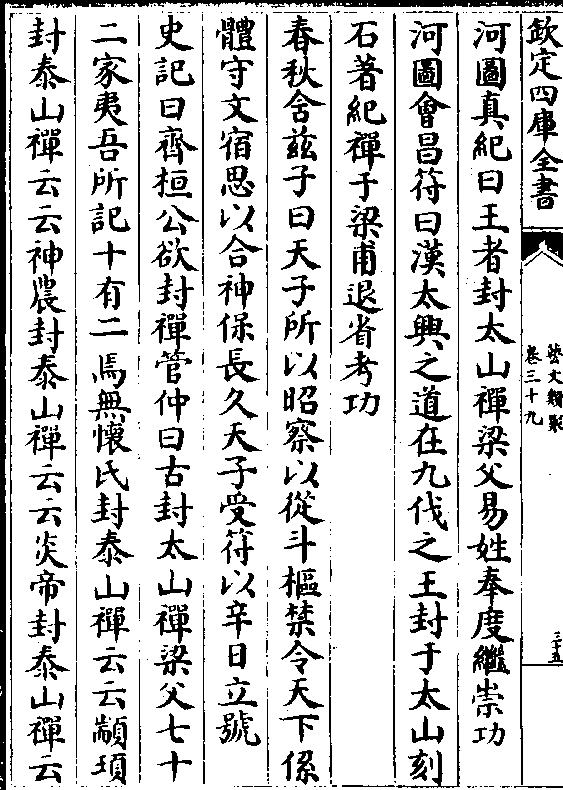 欽定四庫全書
藝文類聚
卷三十九
三十五
河圖真紀曰王者封太山禪梁父易姓奉度繼崇功
河圖會昌符曰漢太興之道在九代之王封于太山刻
石著紀禪于梁甫退省考功
春秋含茲子曰天子所以昭察以從斗樞禁令天下係
體守文宿思以合神保長久天子受符以辛日立號
史記曰齊桓公欲封禪管仲曰古封太山禪梁父七十
二家夷吾所記十有二焉無懷氏封泰山禪云云顓頊
封泰山禪云云神農封泰山禪云云炎帝封泰山禪云